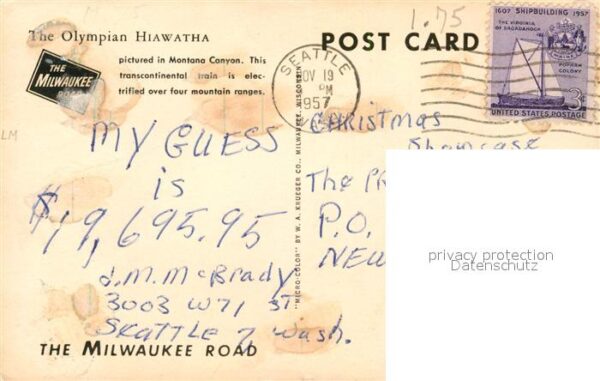 The Olympian HIAWATHA
THE
MILWAUKEE
ROAD
pictured in Montana Canyon. This
transcontinental train is elec-
trified over four mountain ranges.
POST CARD
1.75
SEATTLE
NOV 19
PM
1957
1607 SHIPBUILDING 1957
THE VIRGINIA
OF SAGADAHOCK
POPHAM
COLONY
3¢
UNITED STATES POSTAGE
LM
MY GUESS
is
$19,695.95
J.M. McBrady
3003 W 71 ST.
SEATTLE 7 Wash.
THE MILWAUKEE ROAD
"MICRO-COLOR" BY W. A. KRUEGER CO., MILWAUKEE, WISCONSIN
CHRISTMAS
Showcase
The PR
P.O.
NEW
privacy protection
Datenschutz